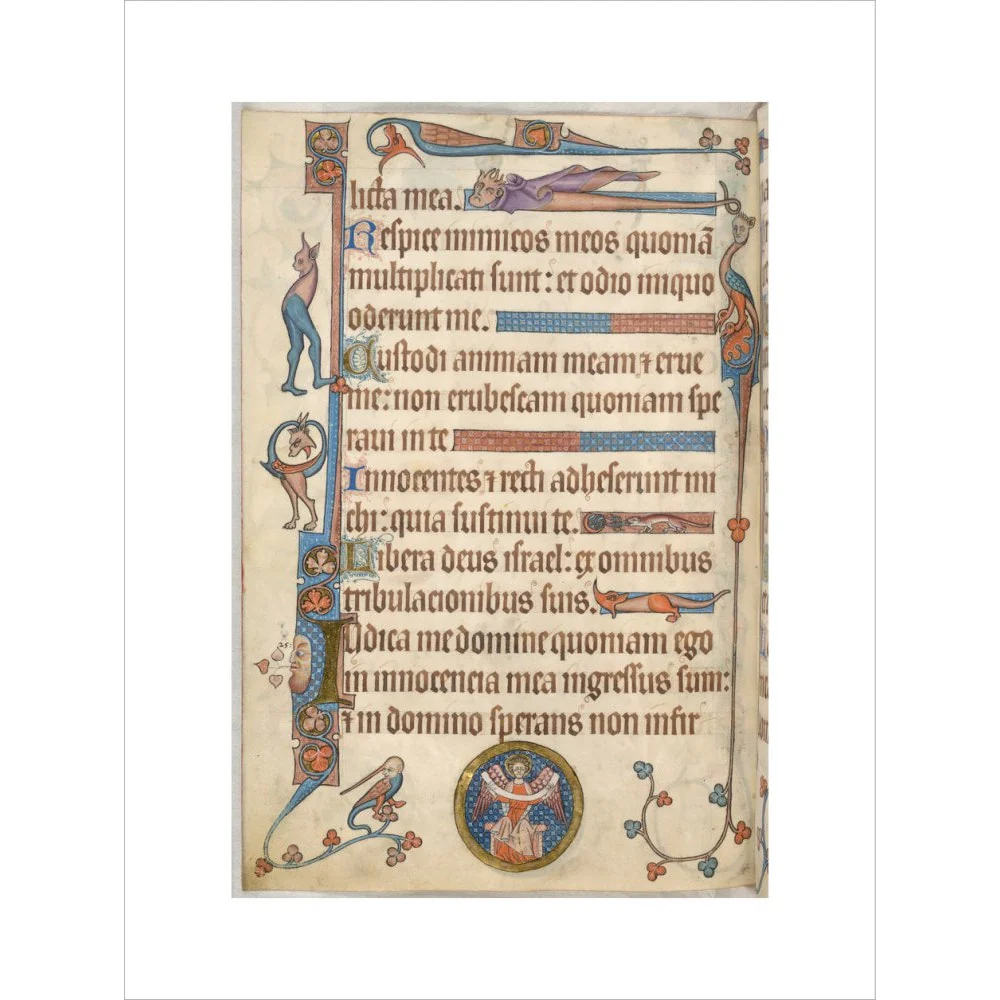 licta mea.
Respice inimicos meos quoniā
multiplicati sunt: et odio iniquo
oderunt me.
Custodi animam meam ⁊ erue
me: non erubescam quoniam spe
raui in te
Innocentes ⁊ recti adheserunt mi
chi: quia sustinui te.
Libera deus israel: ex omnibus
tribulacionibus suis.
25:
Iudica me domine quoniam ego
in innocencia mea ingressus sum:
⁊ in domino sperans non infir